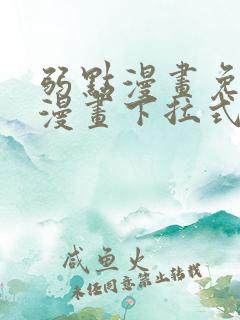 弱點漫畫免
漫畫下拉式
咸鱼火
未经同意禁止转载